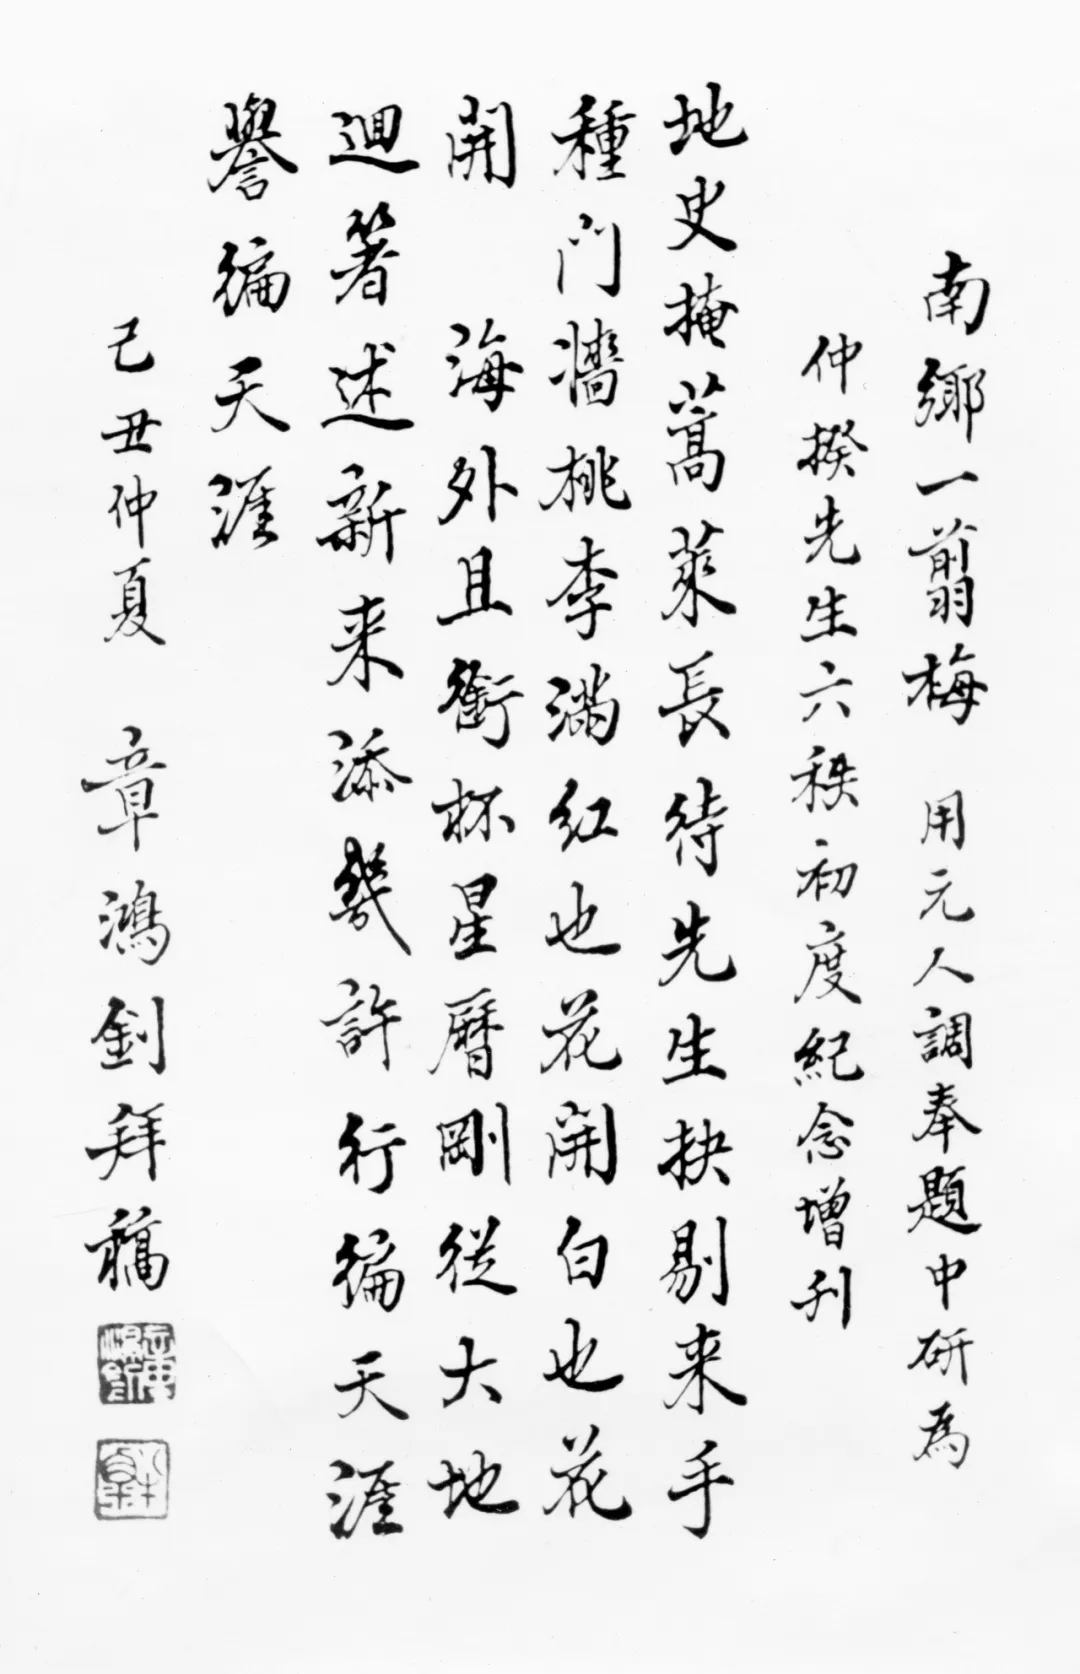 南鄉一翦梅 用元人調奉題中研為
仲揆先生六秩初度紀念增刊
地史掩蒿萊長待先生抉剔来手
種門牆桃李滿紅也花開白也花
開 海外且銜杯星曆剛從大地
迴著述新来添幾許行徧天涯
譽徧天涯
己丑仲夏 章鴻釗拜稿